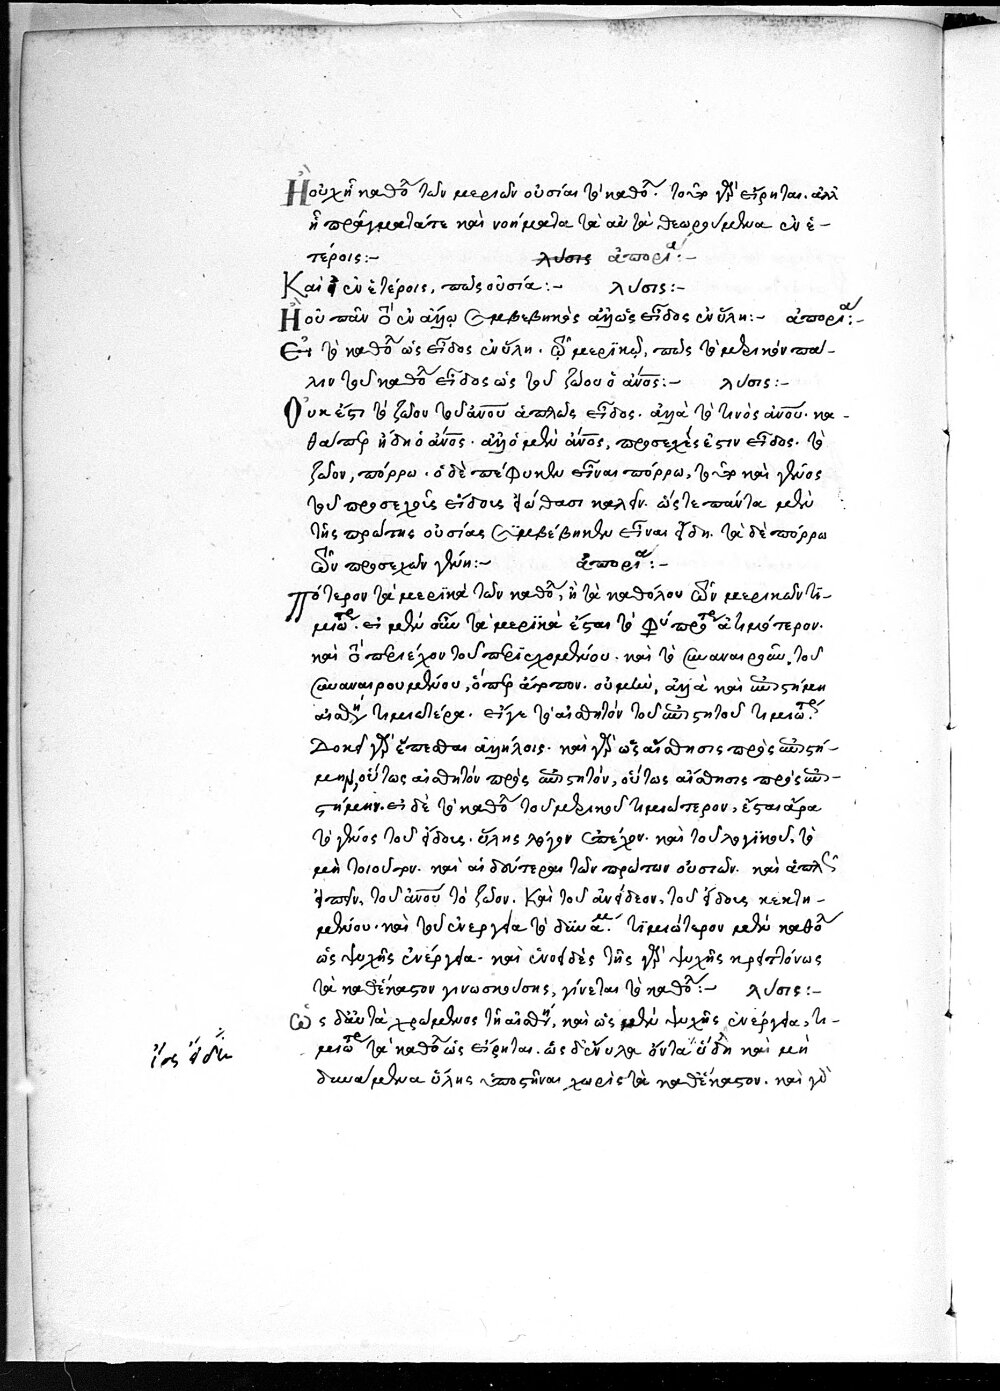 Ἢ οὐχ ᾗ καθόλ τῶν μερικῶν οὐσίαι τὸ καθόλ. τοῦτο γὰρ εἴρηται. ἀλλ
ᾗ πράγματά τε καὶ νοήματα τὰ αὐτὰ θεωρούμενα ἐν ἑ-
τέροις:- λύσις ἀπορία:-
Καὶ ἐν ἑτέροις, πῶς οὐσία:- λύσις:-
Ἢ οὐ πᾶν τὸ ἐν ἄλλῳ συμβεβηκὸς ἀλλ' ὡς εἶδος ἐν ὕλῃ:- ἀπορία:-
Εἰ τὸ καθόλ ὡς εἶδος ἐν ὕλῃ. τῷ μερικῷ, πῶς τὸ μερικὸν πά-
λιν τοῦ καθόλ εἶδος ὡς τοῦ ζώου ὁ ἄνος:- λύσις:-
Οὐκ ἔστι τὸ ζῶον τοῦ ἀνου ἁπλῶς εἶδος. ἀλλὰ τὸ τινὸς ἀνου. κα-
θάπερ ἤδη ὁ ἄνος. ἀλλ' ὁ μὲν ἄνος, προσεχές ἐστιν εἶδος. τὸ
ζῶον, πόρρω. ὃ δὲ πέφυκεν εἶναι πόρρω, τοῦτο καὶ γένος
τοῦ προσεχοῦς εἴδους εἰώθασι καλεῖν. ὥστε πάντα μὲν
τῆς πρώτης οὐσίας συμβέβηκεν εἶναι εἴδη. τὰ δὲ πόρρω
τῶν προσεχῶν γένη:- ἀπορία:-
Πότερον τὰ μερικὰ τῶν καθόλ, ἢ τὰ καθόλου τῶν μερικῶν τι-
μιώτερ. εἰ μὲν οὖν τὰ μερικὰ ἔσται τὸ φύ πρότερ ἀτιμότερον.
καὶ τὸ περιέχον τοῦ περιεχομένου. καὶ τὸ συναναιροῦν, τοῦ
συναναιρουμένου, ὅπερ ἄτοπον. οὐ μὴν, ἀλλὰ καὶ ἐπιστήμη
αἰσθή τιμιωτέρα. εἴγε τὸ αἰσθητὸν τοῦ ἐπιστητοῦ τιμιώτερ.
Δοκεῖ γὰρ ἕπεσθαι ἀλλήλοις. καὶ γὰρ ὡς αἴσθησις πρὸς ἐπιστή-
μην, οὕτως αἰσθητὸν πρὸς ἐπιστητόν, οὕτως αἴσθησις πρὸς ἐπι-
στήμην. εἰ δὲ τὸ καθόλ τοῦ μερικοῦ τιμιώτερον, ἔσται ἄρα
τὸ γένος τοῦ εἴδους. ὕλης λόγον ἐπέχον. καὶ τοῦ λογικοῦ, τὸ
μὴ τοιοῦτον. καὶ αἱ δεύτεραι τῶν πρώτων οὐσιῶν. καὶ ἁπλῶς
εἰπεῖν, τοῦ ἀνου τὸ ζῶον. Καὶ τοῦ ἀνείδεον, τοῦ εἴδους κεκτη-
μένου. καὶ τοῦ ἐνεργείᾳ τὸ δυνάμ. τιμιώτερον μὲν καθόλ
ὡς ψυχῆς ἐνέργεια. καὶ ἑνοειδὲς τῆς γὰρ ψυχῆς κρειττόνως
τὰ καθέκαστον γινωσκούσης, γίνεται τὸ καθόλ:- λύσις:-
Ὡς δ' αὐτὰ χρώμενος τῇ αἰσθή, καὶ ὡς μὲν ψυχῆς ἐνέργεια, τι-
μιώτερ τὰ καθόλ ὡς εἴρηται. ὡς δ' ἔνυλα ὄντα εἴδη καὶ μὴ
δυνάμενα ὕλης ὑποστῆναι χωρὶς τὰ καθέκαστον. καὶ γὰρ
ἴσως εἴδη